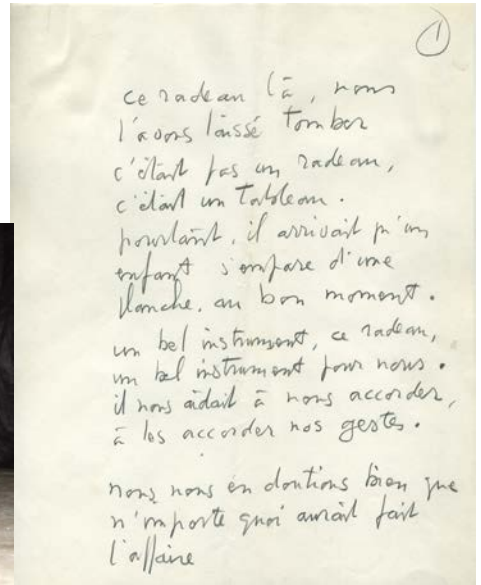 1
ce radeau là, nous
l'avons laissé tomber
c'était pas un radeau,
c'était un tableau.
pourtant, il arrivait qu'un
enfant s'empare d'une
planche, au bon moment.
un bel instrument, ce radeau,
un bel instrument pour nous.
il nous aidait à nous accorder,
à les accorder nos gestes.
nous nous en doutions bien que
n'importe quoi aurait fait
l'affaire